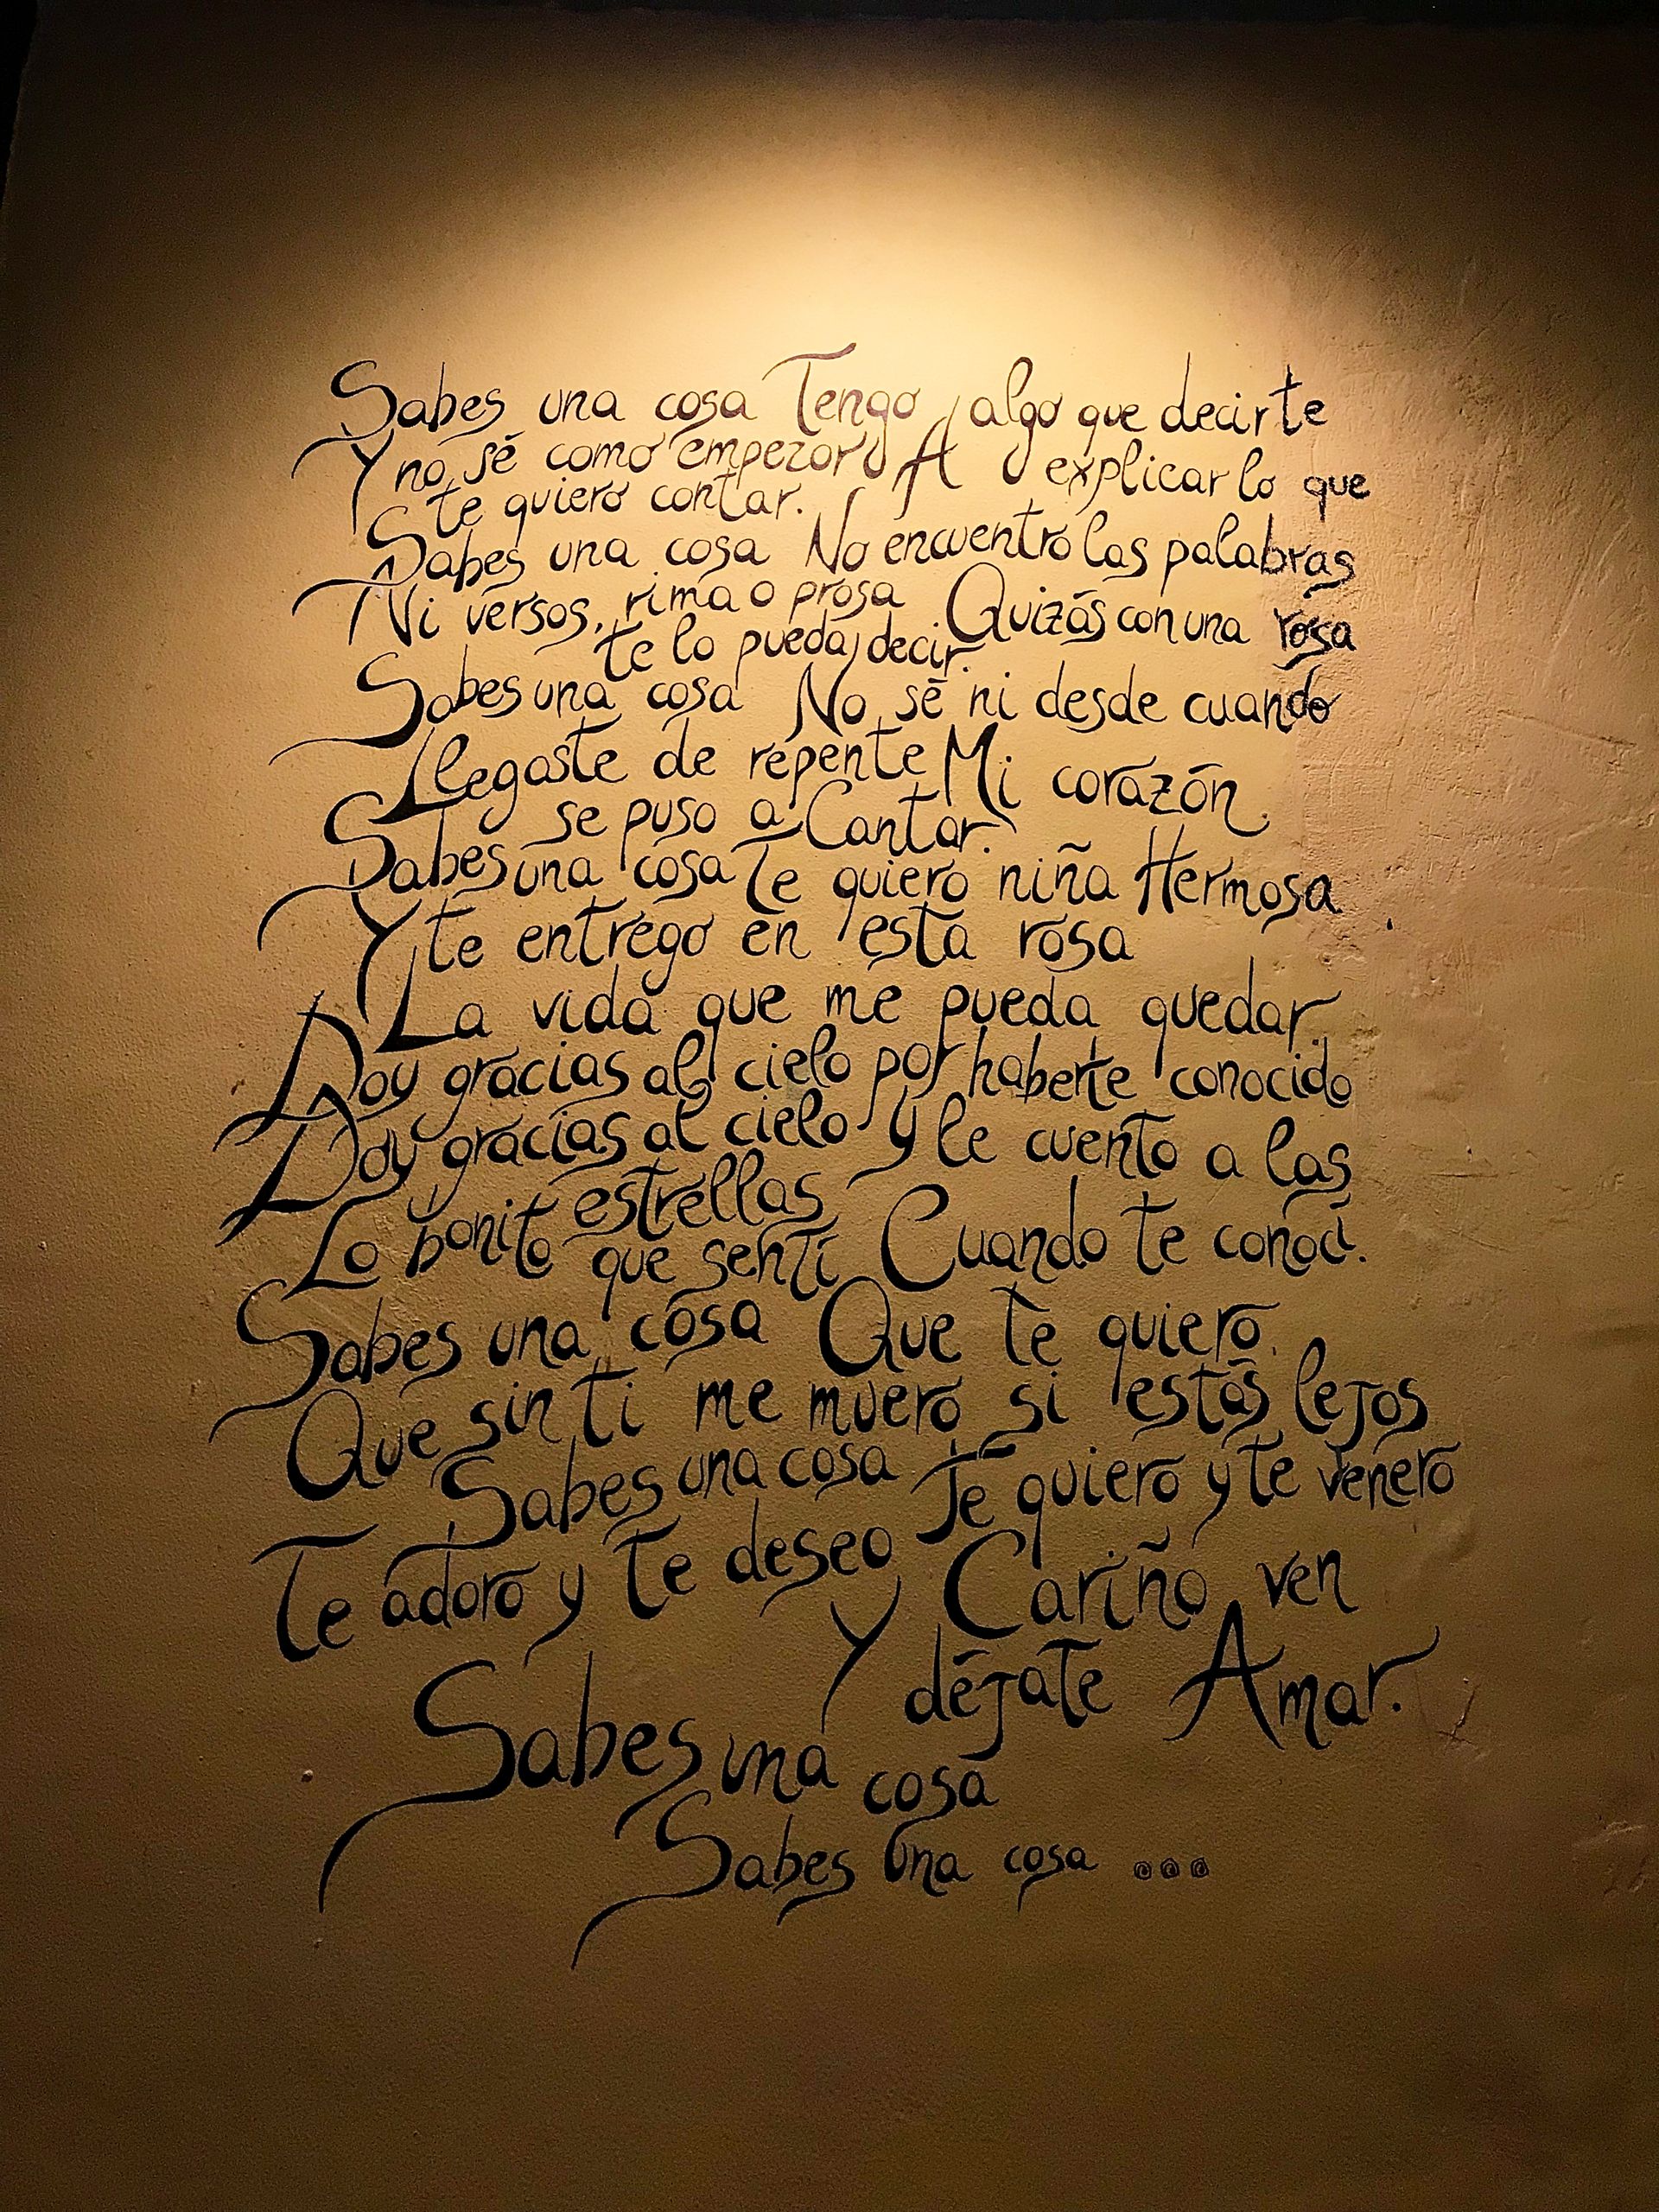 Sabes una cosa Tengo algo que decirte
Y no sé como empezar A explicar lo que
te quiero contar.
Sabes una cosa No encuentro las palabras
Ni versos, rima o prosa Quizás con una rosa
te lo pueda decir.
Sabes una cosa No sé ni desde cuando
Llegaste de repente Mi corazón
se puso a Cantar.
Sabes una cosa Te quiero niña Hermosa
Y te entrego en esta rosa
La vida que me pueda quedar.
Doy gracias al cielo por haberte conocido
Doy gracias al cielo Y le cuento a las
estrellas
Lo bonito que sentí Cuando te conocí.
Sabes una cosa Que te quiero.
Que sin ti me muero si estás lejos
Sabes una cosa Te quiero y te venero
Te adoro y te deseo Cariño ven
Y déjate Amar.
Sabes una cosa
Sabes una cosa ...